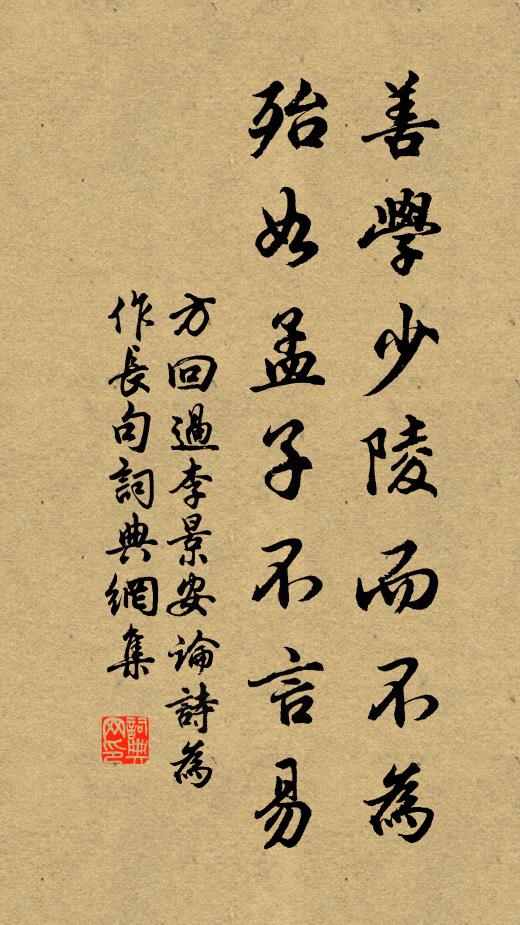 善學少陵而不為
殆如孟子不言易
方回過李景安論詩為
作長句詞典網集
詞典
网印